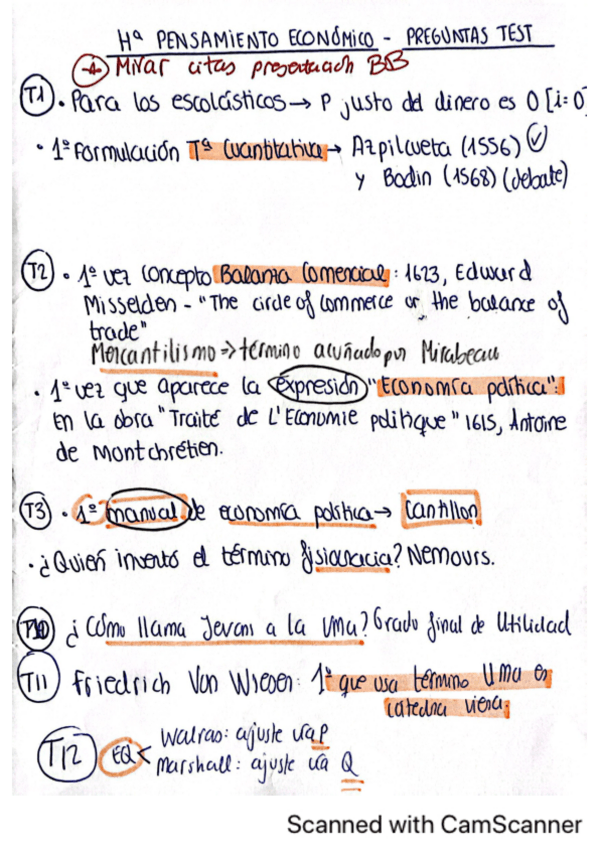 Hª PENSAMIENTO ECONÓMICO - PREGUNTAS TEST
* Mirar citas presentación BB
T1 • Para los escolásticos → P justo del dinero es 0 [i=0
• 1ª formulación Tª Cuantitativa → Azpilcueta (1556) ✓
y Bodin (1568) (debate)
T2 • 1ª vez concepto Balanza Comercial: 1623, Edward
Misselden - "The circle of commerce or the balance of
trade"
Mercantilismo => término acuñado por Mirabeau
• 1ª vez que aparece la expresión "Economía política":
En la obra "Traité de L'Economie politique" 1615, Antoine
de Montchrétien.
T3 • 1º manual de economía política → Cantillon
• ¿Quién inventó el término fisiocracia? Nemours.
T10 ¿Cómo llama Jevons a la UMa? Grado final de Utilidad
T11 Friedrich Von Wieser: 1º que usa término UMa en
cátedra viena.
T12 EQ < Walras: ajuste vía P
Marshall: ajuste vía Q
Scanned with CamScanner